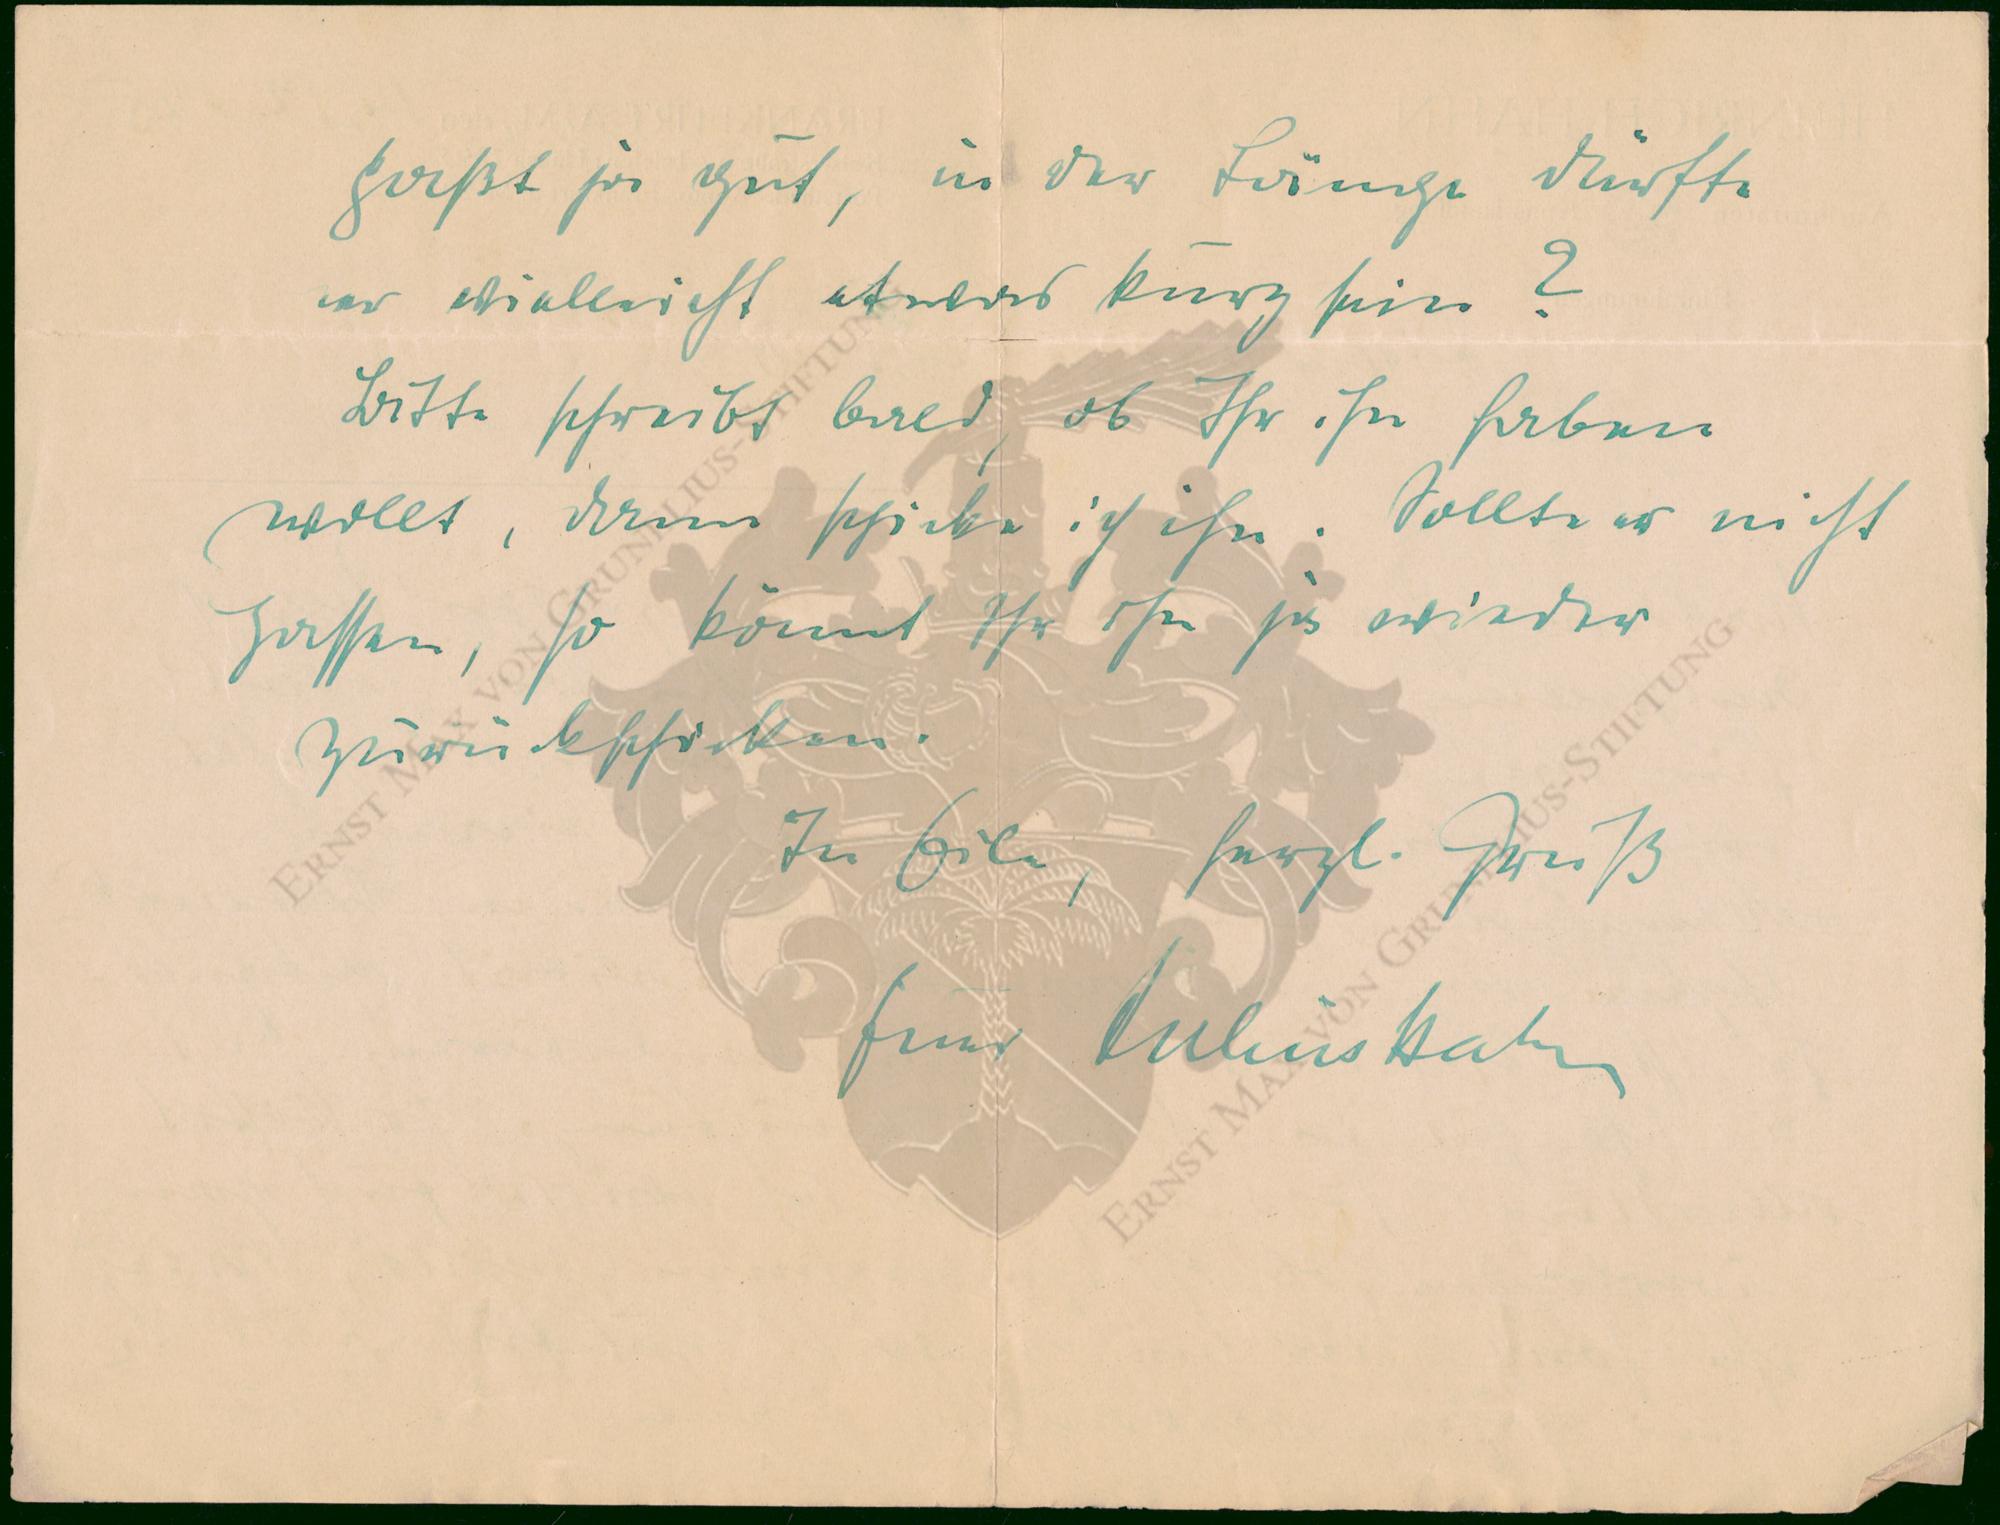 paßt ja gut, in der Länge dürfte
er vielleicht etwas kurz sein?
Bitte schreibt bald, ob Ihr ihn haben
wollt, dann schicke ich ihn. Sollte er nicht
passen, so könnt Ihr ihn ja wieder
zurückschicken.
In Eile, herzl. Gruß
Euer Julius Hahn
ERNST MAX VON GRUNELIUS-STIFTUNG
ERNST MAX VON GRUNELIUS-STIFTUNG